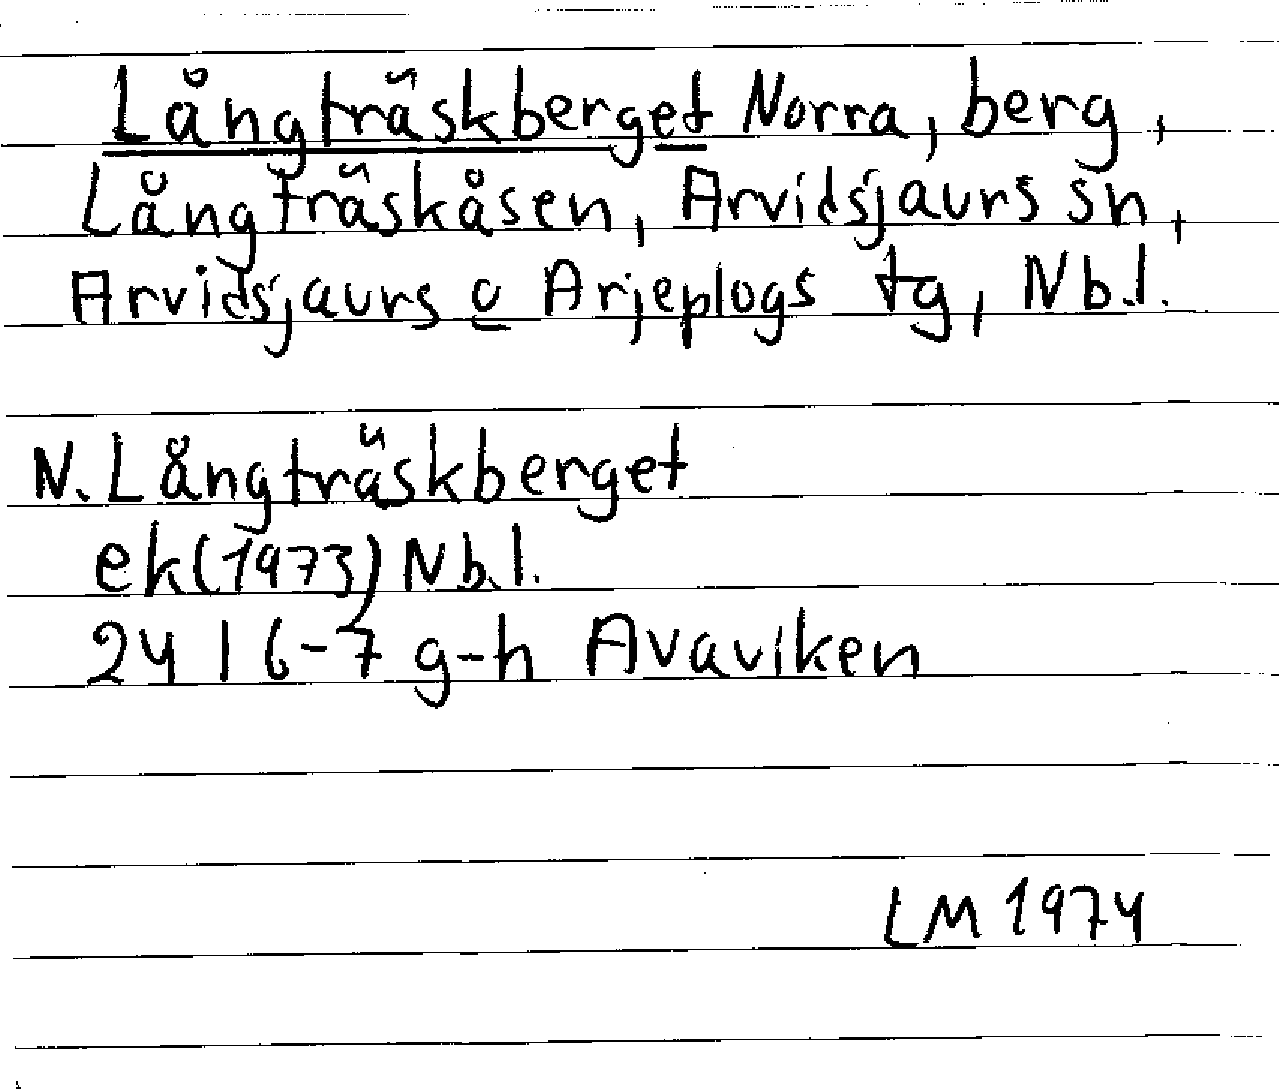 Långträskberget Norra, berg,
Långträskåsen, Arvidsjaurs sn,
Arvidsjaurs o Arjeplogs tg, Nb.l.
N. Långträskberget
ek (1973) Nb.l.
24 I 6-7 g-h Avaviken
LM 1974